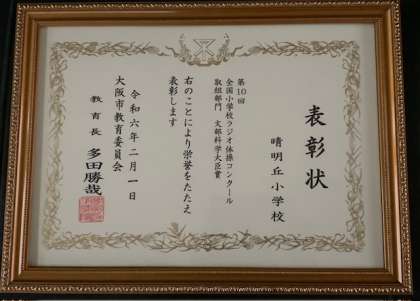 表彰状
晴明丘小学校
第10回
全国小学校ラジオ体操コンクール
取組部門 文部科学大臣賞
右のことにより栄誉をたたえ
表彰します
令和六年二月一日
大阪市教育委員会
教育長 多田勝哉